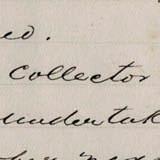 ed.
Collector
undertak